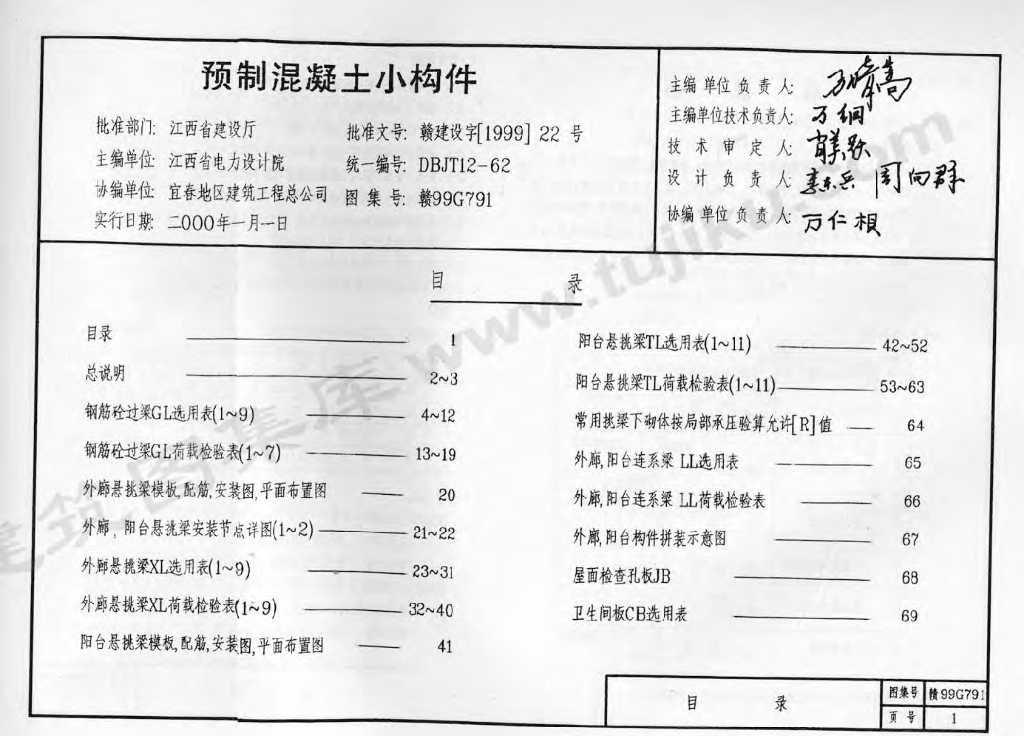 预制混凝土小构件
批准部门: 江西省建设厅 批准文号: 赣建设字[1999] 22 号
主编单位: 江西省电力设计院 统一编号: DBJT12-62
协编单位: 宜春地区建筑工程总公司 图集号: 赣99G791
实行日期: 二000年一月一日
主编单位负责人:
主编单位技术负责人: 万钢
技术审定人:
设计负责人: 周向群
协编单位负责人: 万仁根
目 录
目录 1
总说明 2~3
钢筋砼过梁GL选用表(1~9) 4~12
钢筋砼过梁GL荷载检验表(1~7) 13~19
外廊悬挑梁模板,配筋,安装图,平面布置图 20
外廊, 阳台悬挑梁安装节点详图(1~2) 21~22
外廊悬挑梁XL选用表(1~9) 23~31
外廊悬挑梁XL荷载检验表(1~9) 32~40
阳台悬挑梁模板,配筋,安装图,平面布置图 41
阳台悬挑梁TL选用表(1~11) 42~52
阳台悬挑梁TL荷载检验表(1~11) 53~63
常用挑梁下砌体按局部承压验算允许[R]值 64
外廊,阳台连系梁 LL选用表 65
外廊,阳台连系梁 LL荷载检验表 66
外廊,阳台构件拼装示意图 67
屋面检查孔板JB 68
卫生间板CB选用表 69
目 录
图集号 赣99G791
页号 1
建筑图集库 www.tujiku.com